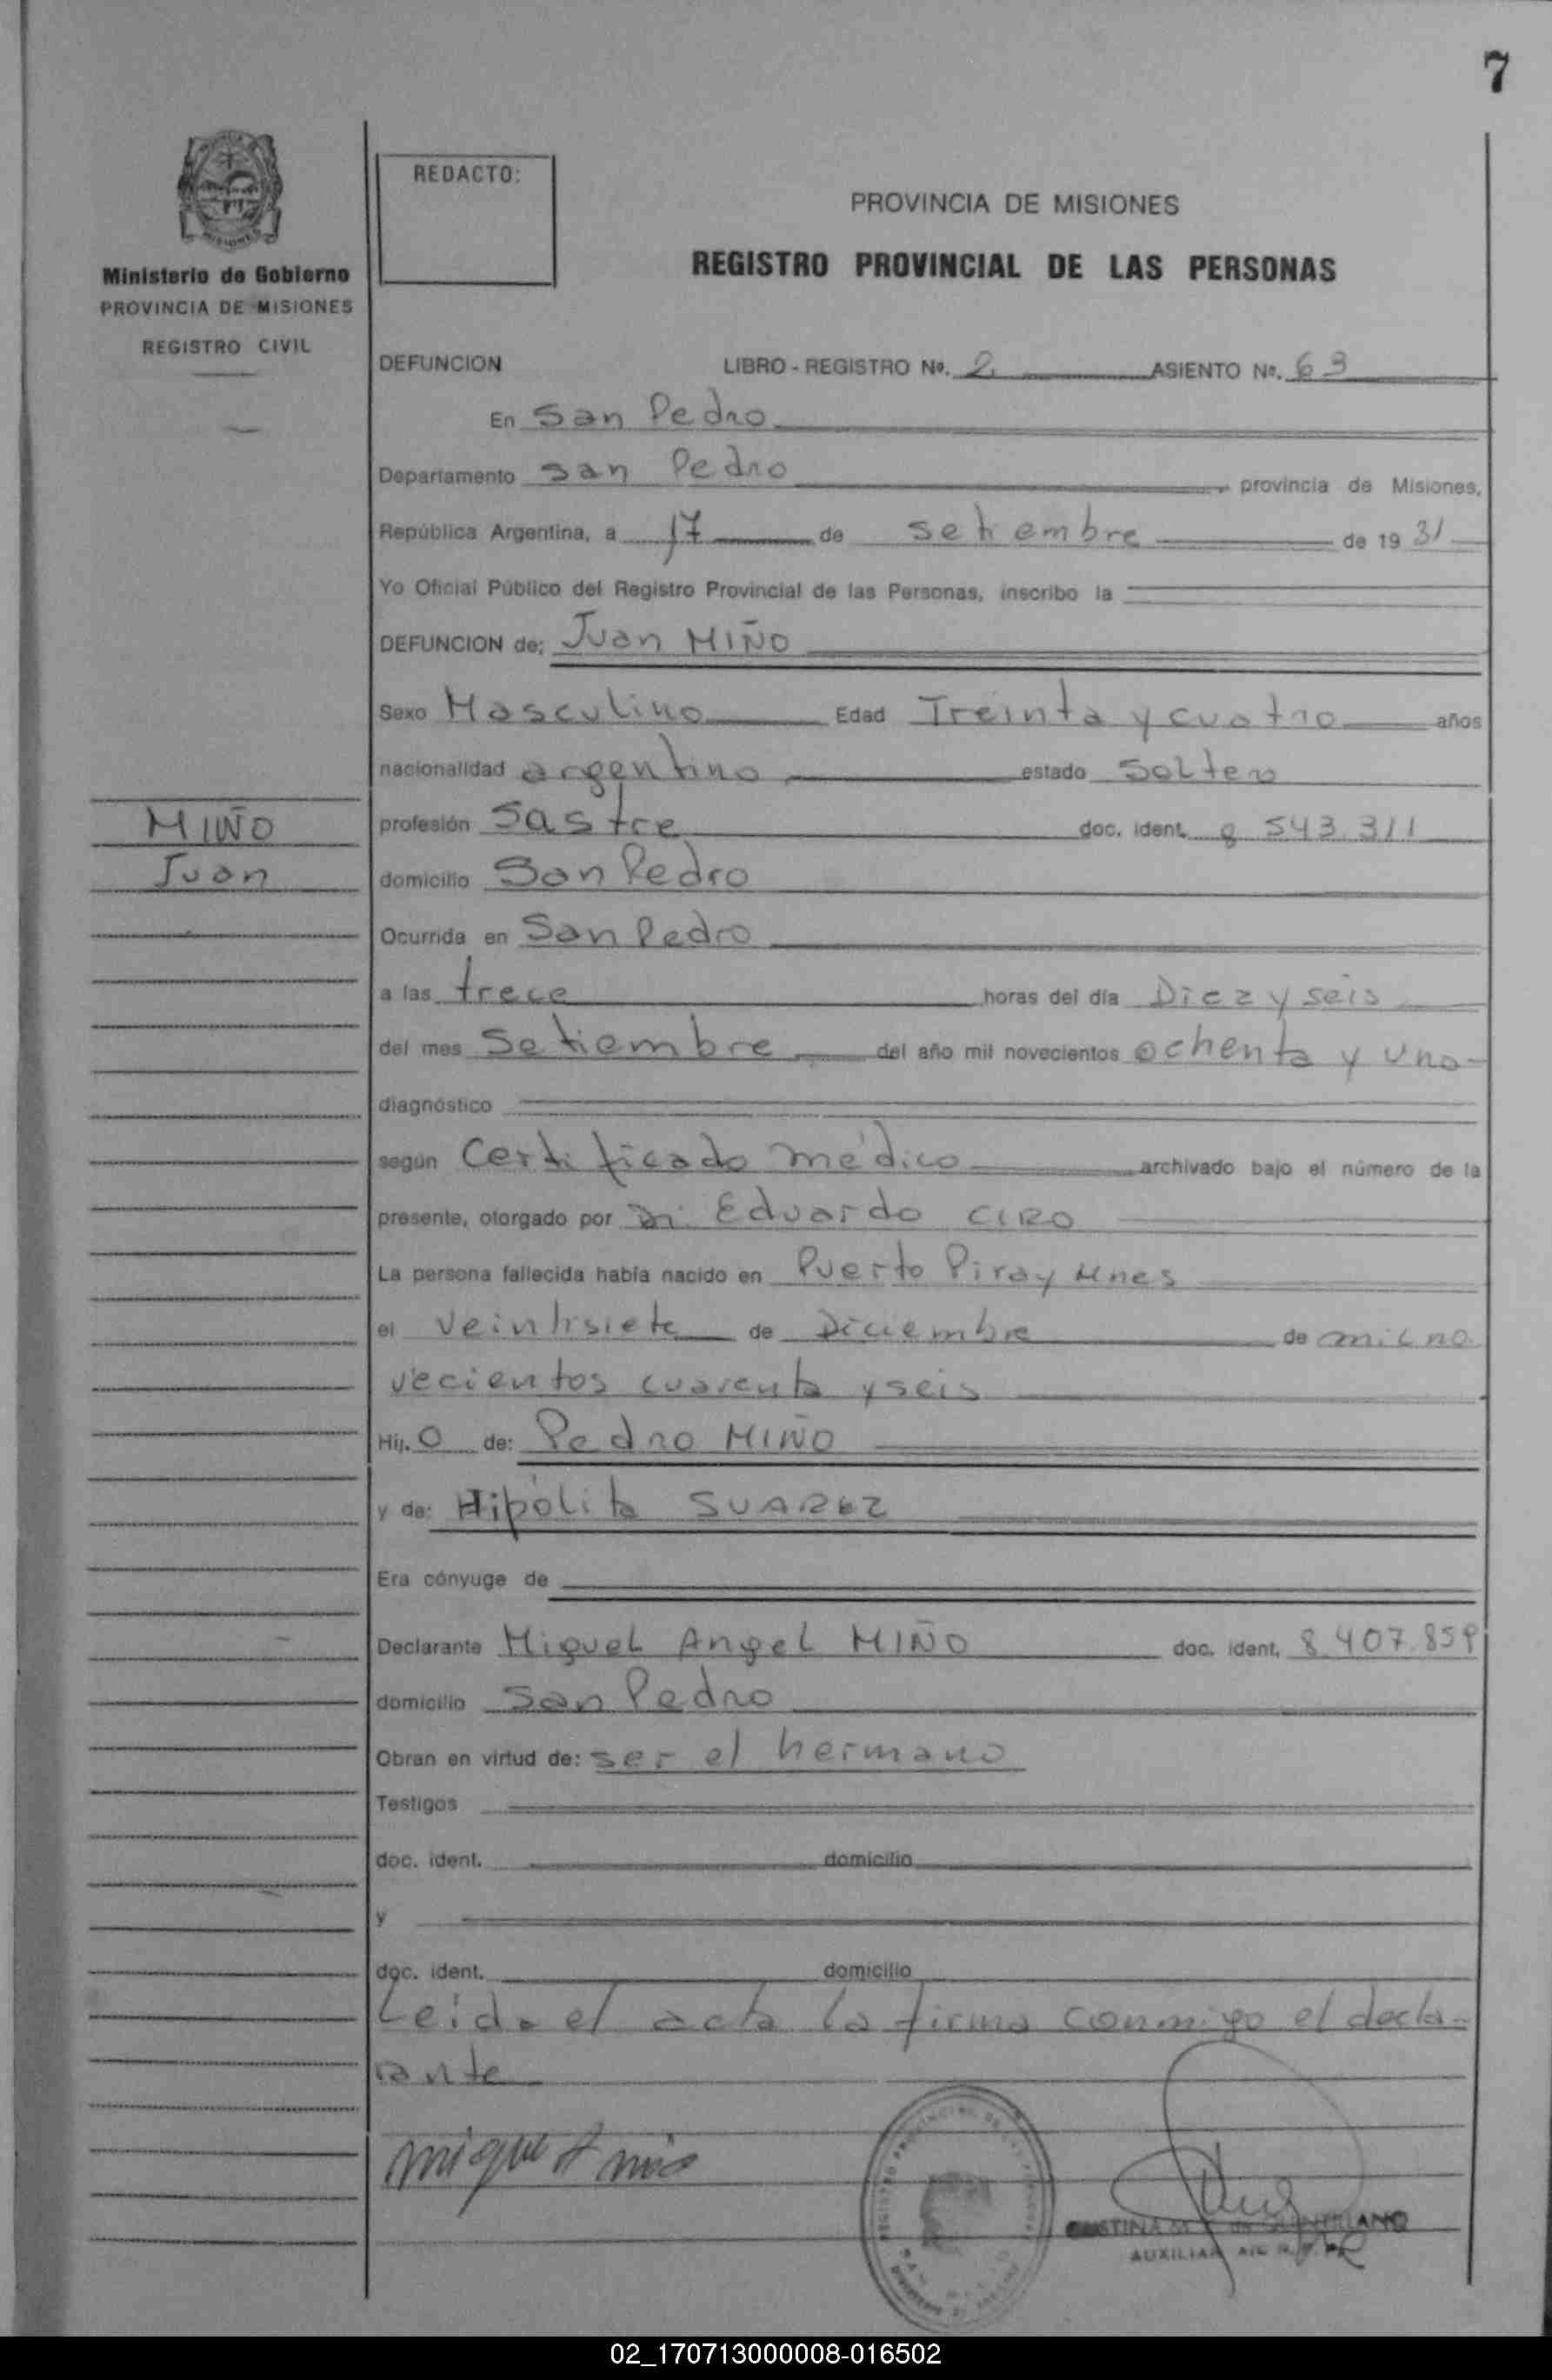 7
REDACTO:
PROVINCIA DE MISIONES
REGISTRO PROVINCIAL DE LAS PERSONAS
Ministerio de Gobierno
PROVINCIA DE MISIONES
REGISTRO CIVIL
DEFUNCION LIBRO - REGISTRO Nº. 2 ASIENTO Nº. 63
En San Pedro
Departamento San Pedro, provincia de Misiones,
República Argentina, a 17 de setiembre de 19 31
Yo Oficial Público del Registro Provincial de las Personas, inscribo la
DEFUNCION de; Juan MIÑO
Sexo Masculino Edad Treinta y cuatro años
nacionalidad argentino estado Soltero
MIÑO
Juan
profesión Sastre doc. ident. 8 543.311
domicilio San Pedro
Ocurrida en San Pedro
a las trece horas del día Diez y seis
del mes Setiembre del año mil novecientos ochenta y uno
diagnóstico
según Certificado médico archivado bajo el número de la
presente, otorgado por Dr. Eduardo CIRO
La persona fallecida había nacido en Puerto Piray Mnes
el veintisiete de Diciembre de mil no
vecientos cuarenta y seis
Hij. O de: Pedro MIÑO
y de: Hipólita SUAREZ
Era cónyuge de
Declarante Miguel Angel MIÑO doc. ident. 8.407.859
domicilio San Pedro
Obran en virtud de: ser el hermano
Testigos
doc. ident. domicilio
y
doc. ident. domicilio
Leida el acta la firma conmigo el decla-
rante
AUXILIAR
02_170713000008-016502